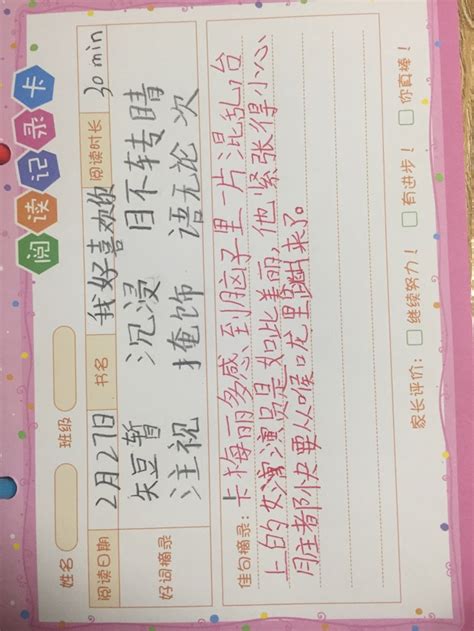 阅读记录卡
姓名 班级
阅读日期 2月27日 书名 我好喜欢你 阅读时长 30min
好词摘录 短暂 沉浸 目不转睛
注视 掩饰 语无论次
佳句摘录: 卡梅丽多感到脑子里一片混乱台
上的女演员是如此美丽,他紧张得小心
脏都快要从喉咙里蹦出来了。
家长评价: □ 继续努力! □ 有进步! □ 你真棒!